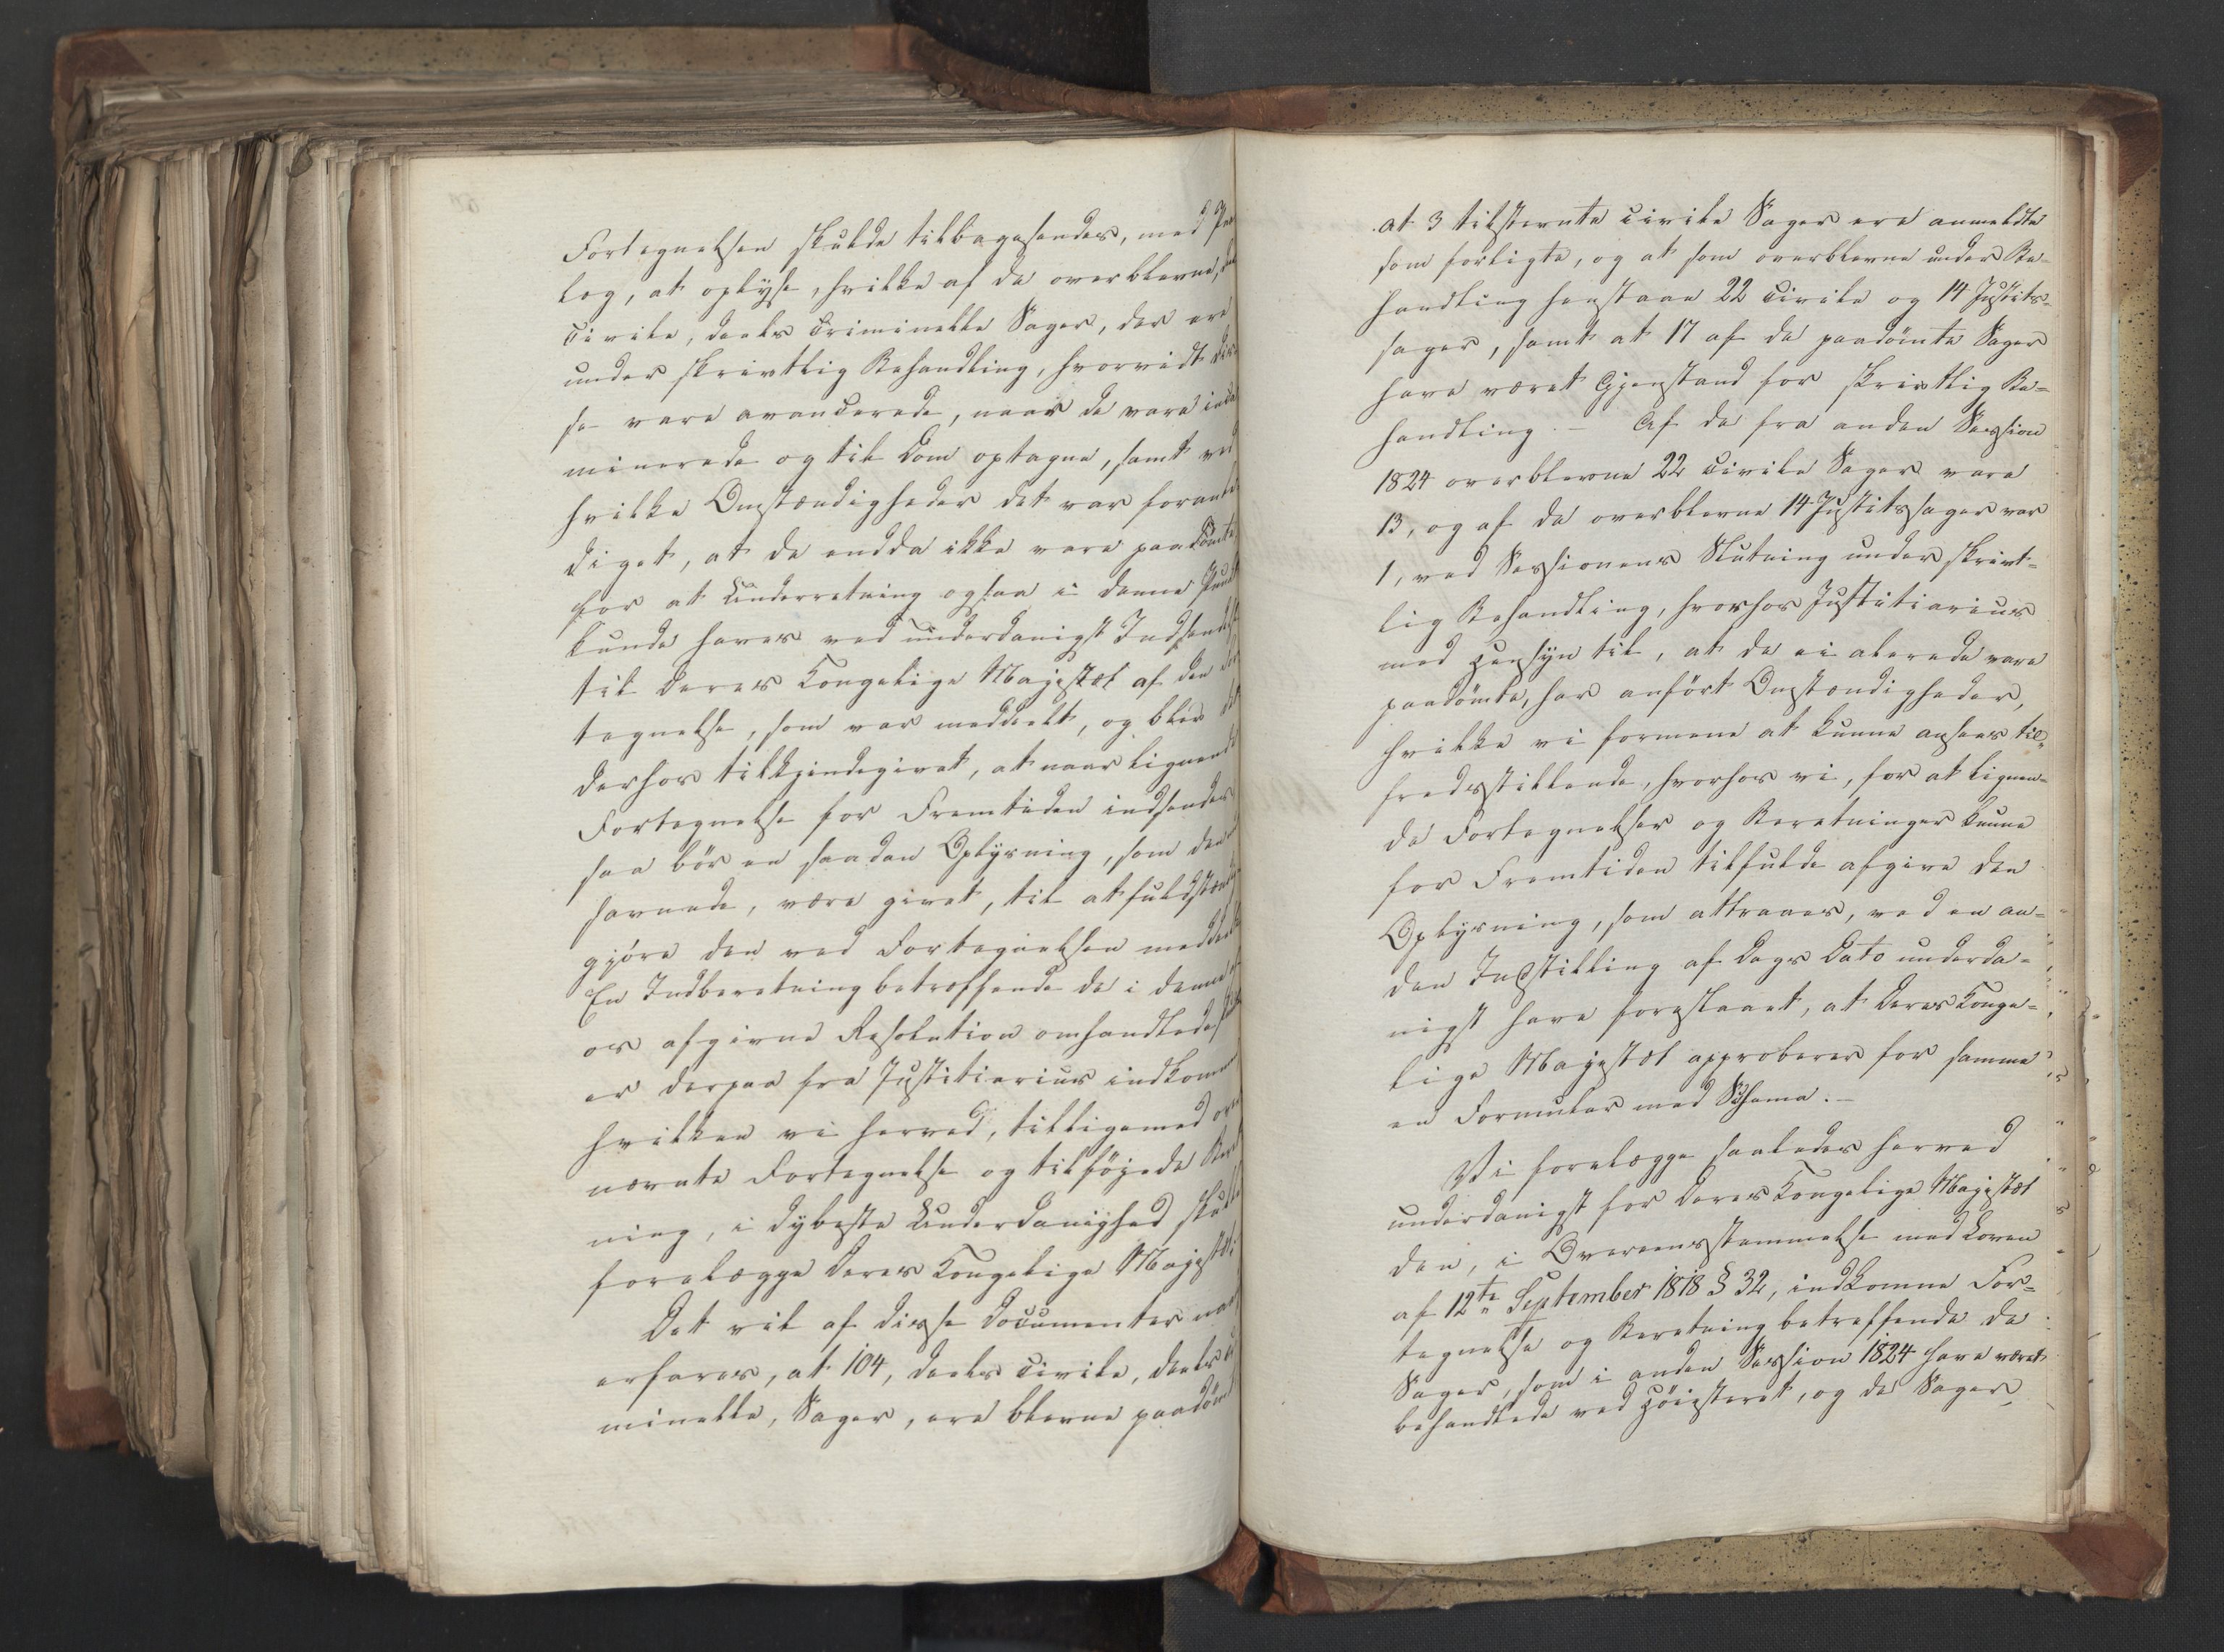 Fortegnelsen skulde tilbagesendes, med Paa
læg, at oplyse, hvilke af de overblevne,
civile, deels criminelle Sager, der ere
under skrivtlig Behandling, hvorvidt dis
se vare avancerede, naar de vare inca
minerede og til Dom optagne, samt ved
hvilke Omstændigheder det var foranle
diget, at de endda ikke vare paadömte
for at Underretning ogsaa i denne Punkt
kunde haves ved underdanigst Indsendelse
til Deres Kongelige Majestæt af den For
tegnelse, som var meddeelt, og blev det
derhos tilkjendegivet, at naar lignende
Fortegnelse for Fremtiden indsendes
saa bör en saadan Oplysning, som den
savnede, være givet, til at fuldstændig
gjöre den ved Fortegnelsen meddeelte
En Indberetning betræffende de i denne
os afgivne Resolution omhandlede
er derpaa fra Justitiarius indkommen
hvilken vi herved, tilligemed oven
nævnte Fortegnelse og tilföjede Beret
ning, i dybeste Underdanighed skulle
forelægge Deres Kongelige Majestæt
Det vil af disse Documenter naa
erfares, at 104, deels civile, deels cri
minelle, Sager, ere blevne paadömte
at 3 tilstevnte civile Sager ere anmeldte
som forligte, og at som overblevne under Be-
handling henstaae 22 civile og 14 Justits-
sager, samt at 17 af de paadömte Sager
have været Gjenstand for skrivtlig Be-
handling. - Af de fra anden Session
1824 overblevne 22 civile Sager vare
13, og af de overblevne 14 Justitssager var
1, ved Sessionens Slutning under skrivt-
lig Behandling, hvorhos Justitiarius
med Hensyn til, at de ei allerede vare
paadömte, har anfört Omstændigheder,
hvilke vi formene at kunne ansees til-
fredsstillende, hvorhos vi, for at lignen-
de Fortegnelser og Beretninger kunne
for Fremtiden tilfulde afgive den
Oplysning, som attraaes, ved en an-
den Indstilling af Dags Dato underda-
nigst have foreslaaet, at Deres Konge-
lige Majestæt approberer for samme
en Formular med Schema. -
Vi forelægge saaledes herved
underdanigst for Deres Kongelige Majestæt
den, i Overeensstemmelse med Loven
af 12te September 1818 § 32, indkomne For-
tegnelse og Beretning betræffende de
Sager, som i anden Session 1824 have været
behandlede ved Höiesteret, og de Sager,